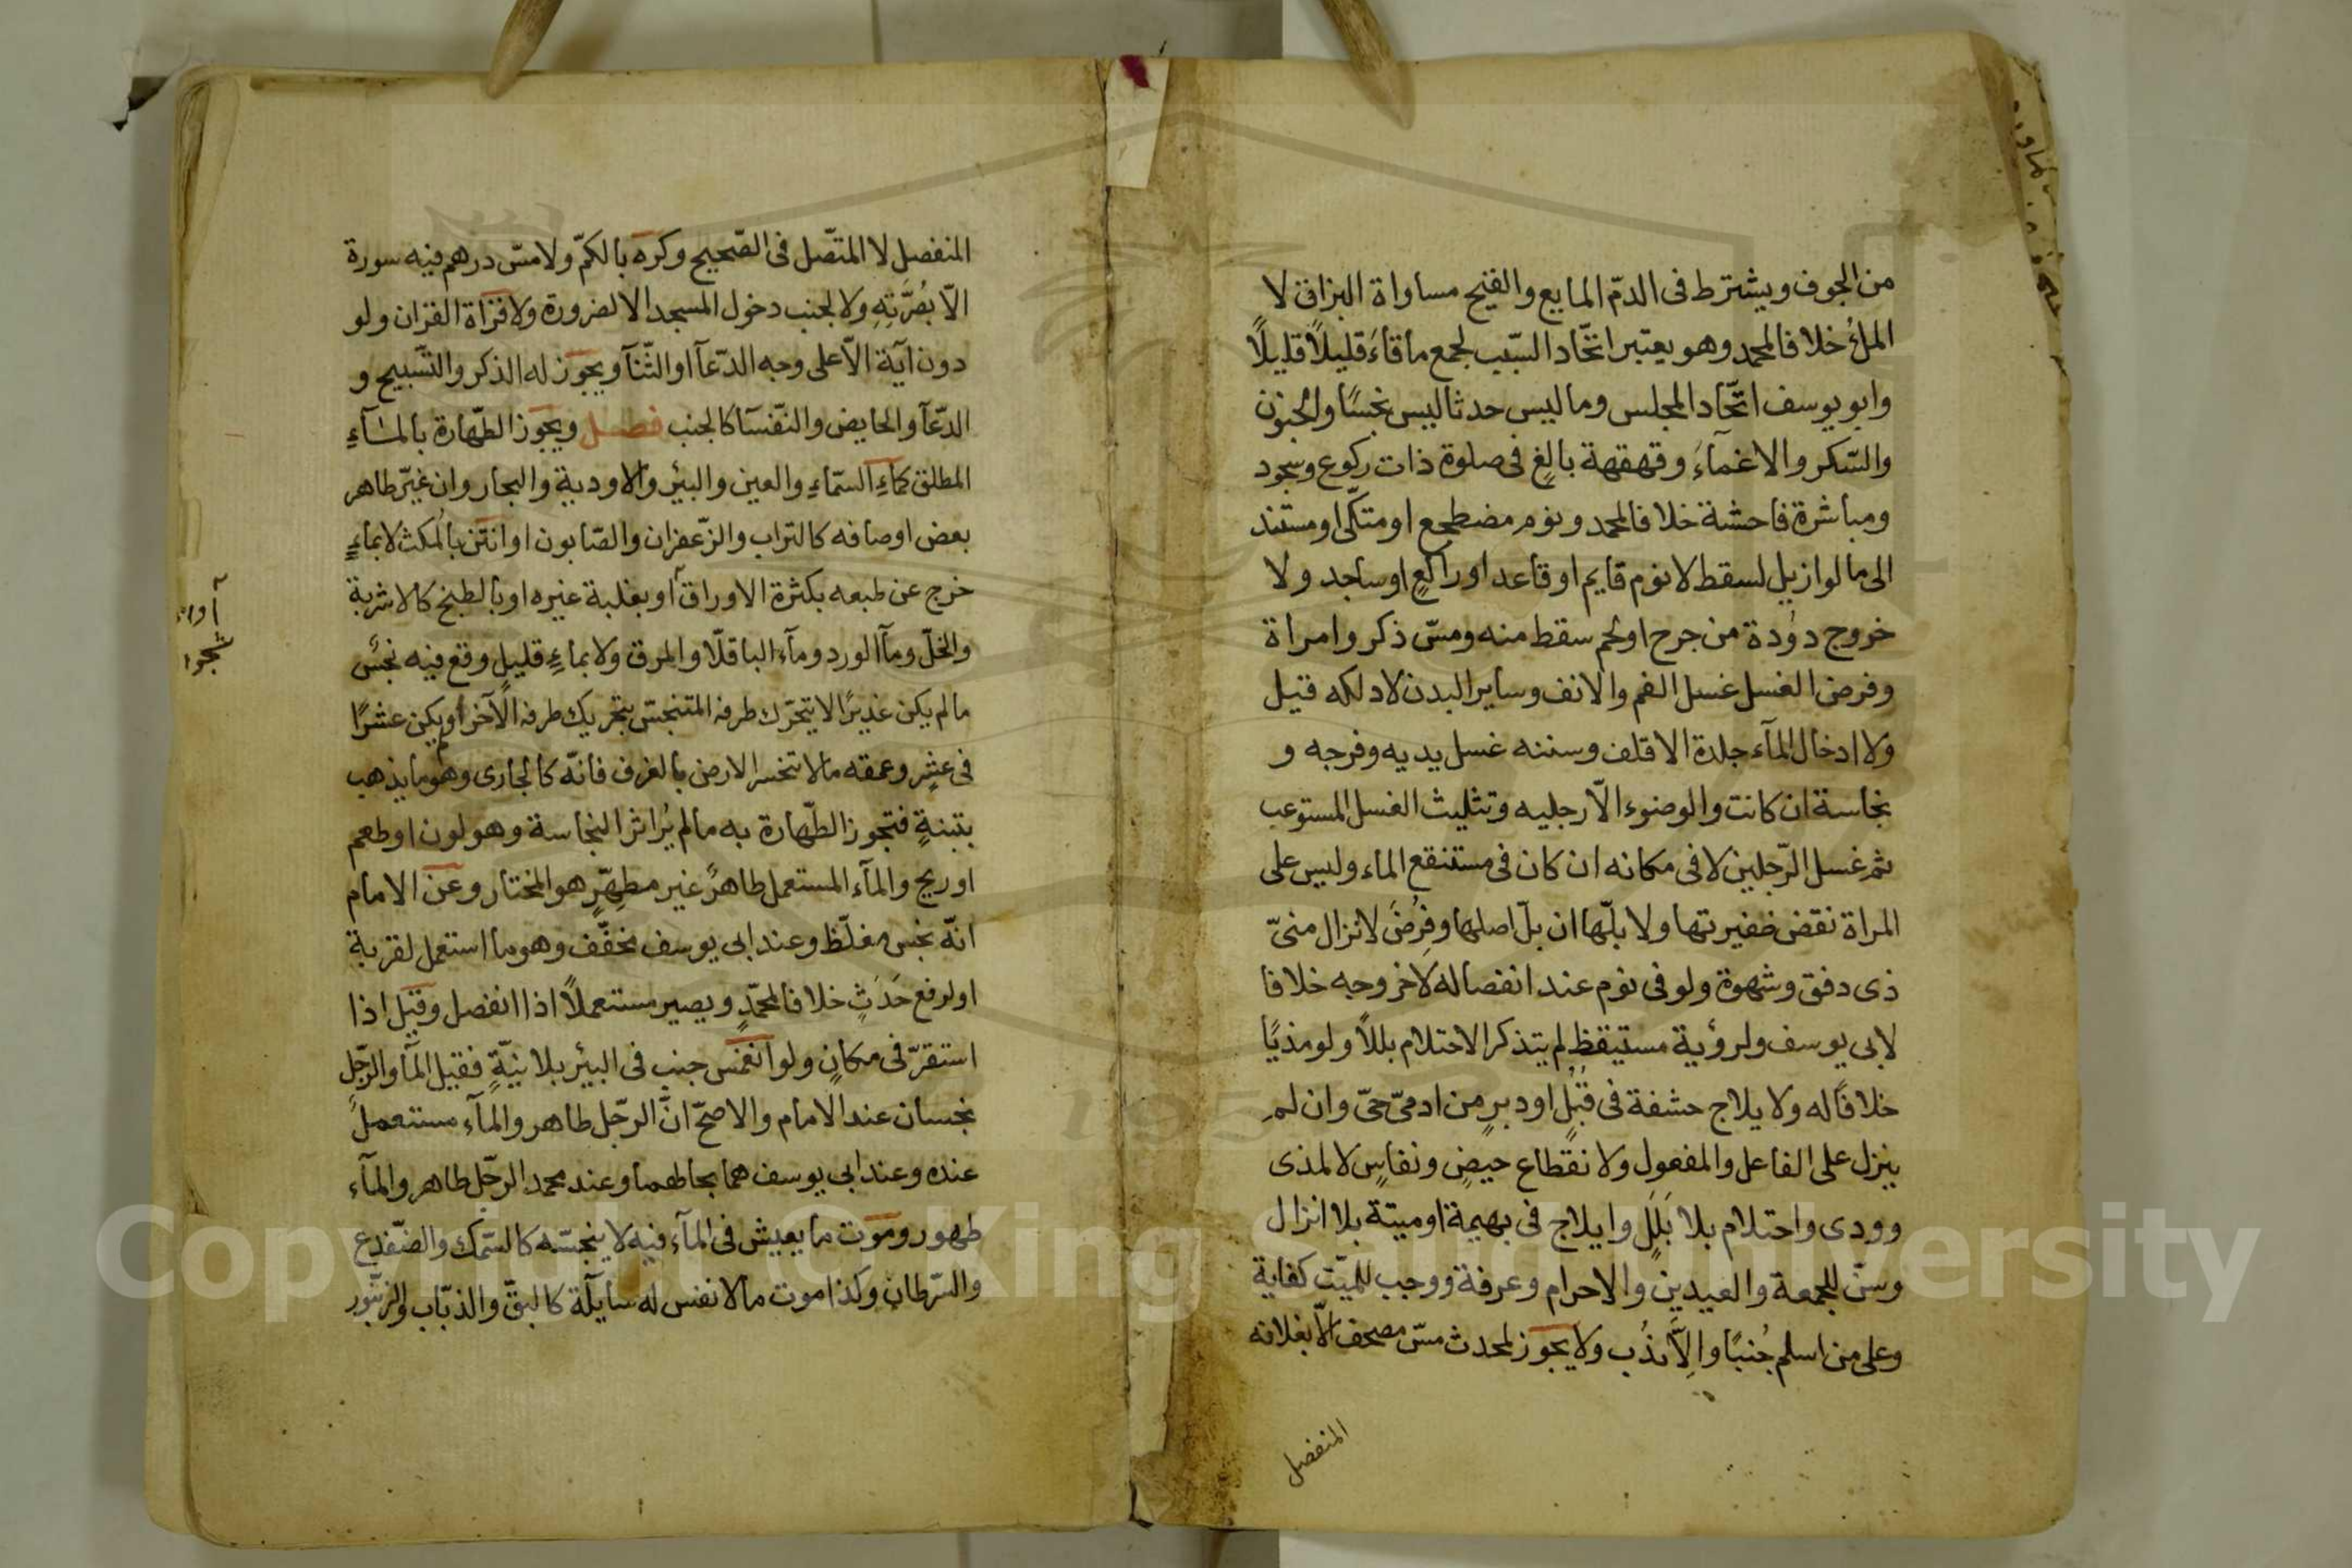 من الجوف ويشترط فى الدمّ المايع والقيح مساواة البزاق لا
الملؤ خلافا لمحمد وهو يعتبر اتّحاد السّبب لجمع ما قاءَ قليلاً قليلاً
وابو يوسف اتّحاد المجلس وما ليس حدثا ليس نجسًا والجنون
والسّكر والاغمآءُ وقهقهة بالغٍ فى صلوة ذات ركوع وسجود
ومباشرة فاحشة خلافا لمحمد ونوم مضطجع او متكّى او مستند
الى ما لو ازيل لسقط لا نوم قايم او قاعد او راكعٍ او ساجد ولا
خروج دوُدة من جرح او لحم سقط منه ومسّ ذكر وامراة
وفرض الغسل غسل الفم والانف وساير البدن لا دلكه قيل
ولا ادخال المآء جلدة الاقلف وسننه غسل يديه وفرجه و
نجاسة ان كانت والوضوء الاّ رجليه وتثليث الغسل المستوعب
ثم غسل الرّجلين لا فى مكانه ان كان فى مستنقع الماء وليس على
المراة نقض ضفيرتها ولا بلّها ان بلّ اصلها وفُرِضَ لانزال منىّ
ذى دفق وشهوة ولو فى نوم عند انفصاله لا خروجه خلافا
لابى يوسف ولرؤية مستيقظٍ لم يتذكر الاحتلام بللاً ولو مذيًا
خلافًا له ولايلاج حشفة فى قُبُلٍ او دبرٍ من ادمىّ حىّ وان لم
ينزل على الفاعل والمفعول ولانقطاع حيضٍ ونفاسٍ لا لمذى
وودى واحتلام بلا بَلَلٍ وايلاج فى بهيمة او ميتة بلا انزال
وسنّ للجمعة والعيدين والاحرام وعرفة ووجب للميّت كفاية
وعلى من اسلم جُنبًا والاّ نُدب ولا يجوز لمحدث مسّ مصحف الاّ بغلافه
المنفصل
المنفصل لا المتّصل فى الصّحيح وكره بالكمّ ولا مسّ درهم فيه سورة
الاّ بصُرَّتِهِ ولا لجنب دخول المسجد الا لضرورة ولا قراة القران ولو
دون آية الاّ على وجه الدّعآ او الثّنآ ويجوز له الذكر والتّسبيح و
الدّعآ والحايض والنّفسآ كالجنب فصل ويجوز الطّهارة بالمآءِ
المطلق كمآءِ السّماءِ والعين والبئر والاودية والبحار وان غيّر طاهر
بعض اوصافه كالتراب والزّعفران والصّابون او انتن بالمُكث لا بماءٍ
خرج عن طبعه بكثرة الاوراق او بغلبة غيره او بالطبخ كالاشربة
والخلّ ومآ الورد ومآء الباقلّا والمرق ولا بماءٍ قليلٍ وقع فيه نجسٌ
مالم يكن غديرًا لا يتحرّك طرفه المتنجّس بتحريك طرفه الآخر او يكن عشرًا
فى عشرٍ وعمقه مالا تنخسر الارض بالغرف فانّه كالجارى وهو ما يذهب
بتبنةٍ فتجوز الطّهارة به مالم يُر اثر النجاسة وهو لون او طعم
او ريح والمآء المستعمل طاهرٌ غير مطهّرٍ هو المختار وعن الامام
انّه نجس مغلّظ وعند ابى يوسف مخفّف وهو ما استعمل لقربة
او لرفع حَدَثٍ خلافا لمحمّدٍ ويصير مستعملاً اذا انفصل وقيل اذا
استقرّ فى مكانٍ ولو انغمس جنب فى البئر بلا نيّةٍ فقيل المآ والرّجل
نجسان عند الامام والاصحّ انّ الرّجل طاهر والمآء مستعملٌ
عنده وعند ابى يوسف هما بحالهما وعند محمد الرجّل طاهر والمآء
طهور وموت ما يعيش فى المآء فيه لا ينجسّه كالسّمك والضّفدع
والسّرطان وكذا موت مالا نفس له سايلة كالبقّ والذبّاب والزنبّور
Copyright © King Saud University